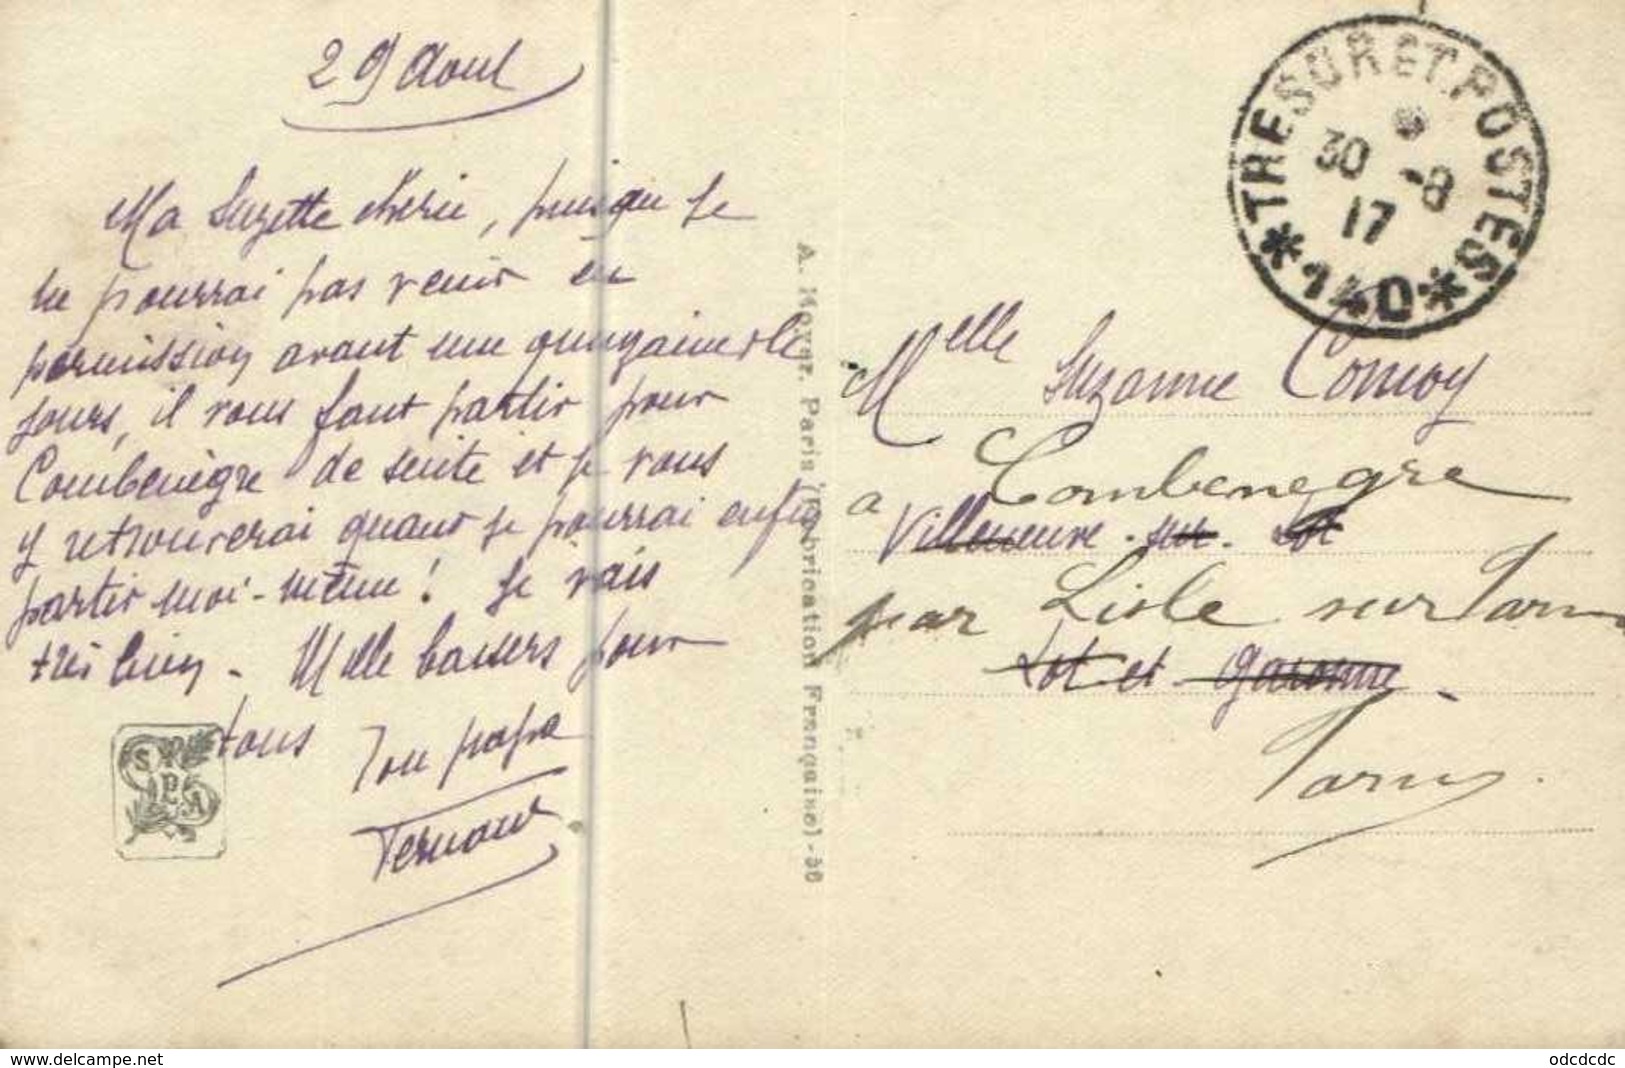 29 Aout
Ma Suzette chérie, puisque je
ne pourrai pas venir en
permission avant une quinzaine de
jours, il vous faut partir pour
Combenègre de suite et je vous
y retrouverai quand je pourrai enfin
partir moi-même ! Je vais
très bien - Mille baisers pour
tous Ton papa
Fernand
S P P A
A. Noyer. Paris (Fabrication Française) - 36
TRESOR ET POSTES
30 -8
17
*140*
Melle Suzanne Comoy
a Combenegre
Villeneuve-sur-Lot
par Lisle sur Tarn
Lot et Garonne
Tarn
delcampe.net
odcdcdc